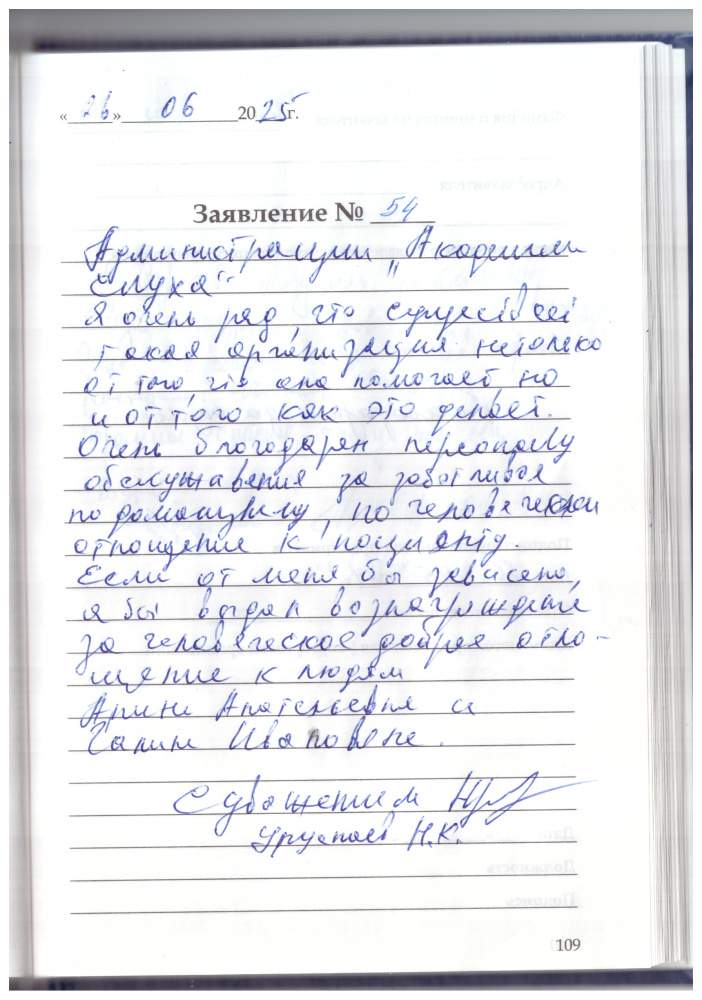 «26» 06 2025г.
Заявление № 54
Администрации „Академии
слуха“
Я очень рад, что существует
такая организация нетолько
от того, что она помогает, но
и от того как это делает.
Очень благодарен персоналу
обслужавения за заботливое
по домашнему, по человечески
отношение к пациенту.
Если от меня бы зависело,
я бы выдал вознаграждение
за человеческое доброе отно-
шение к людям
Арине Анатольевне и
Галине Ивановне.
С уважением
Н.К.
109